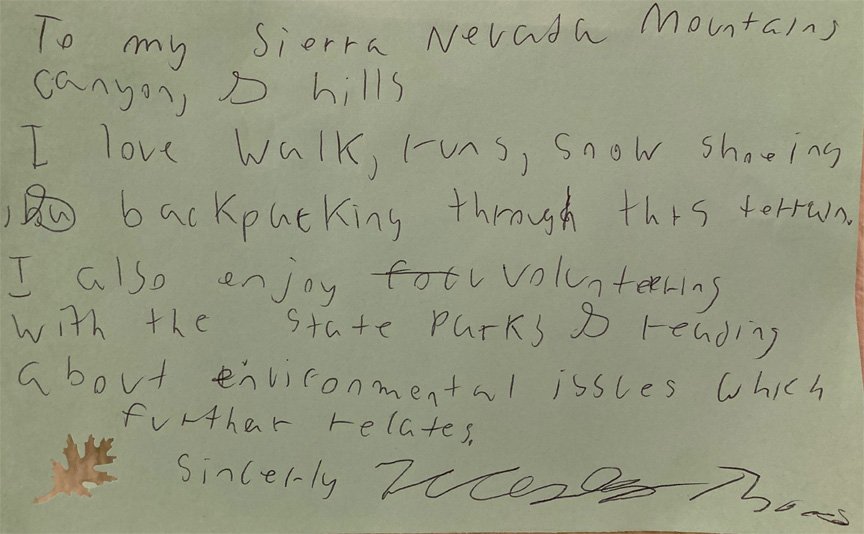 To my Sierra Nevada Mountains
Canyon, & hills
I love walk, runs, snow shoeing
, & backpacking through this terrain.
I also enjoy volunteering
with the state parks & reading
about environmental issues which
further relates.
Sincerly